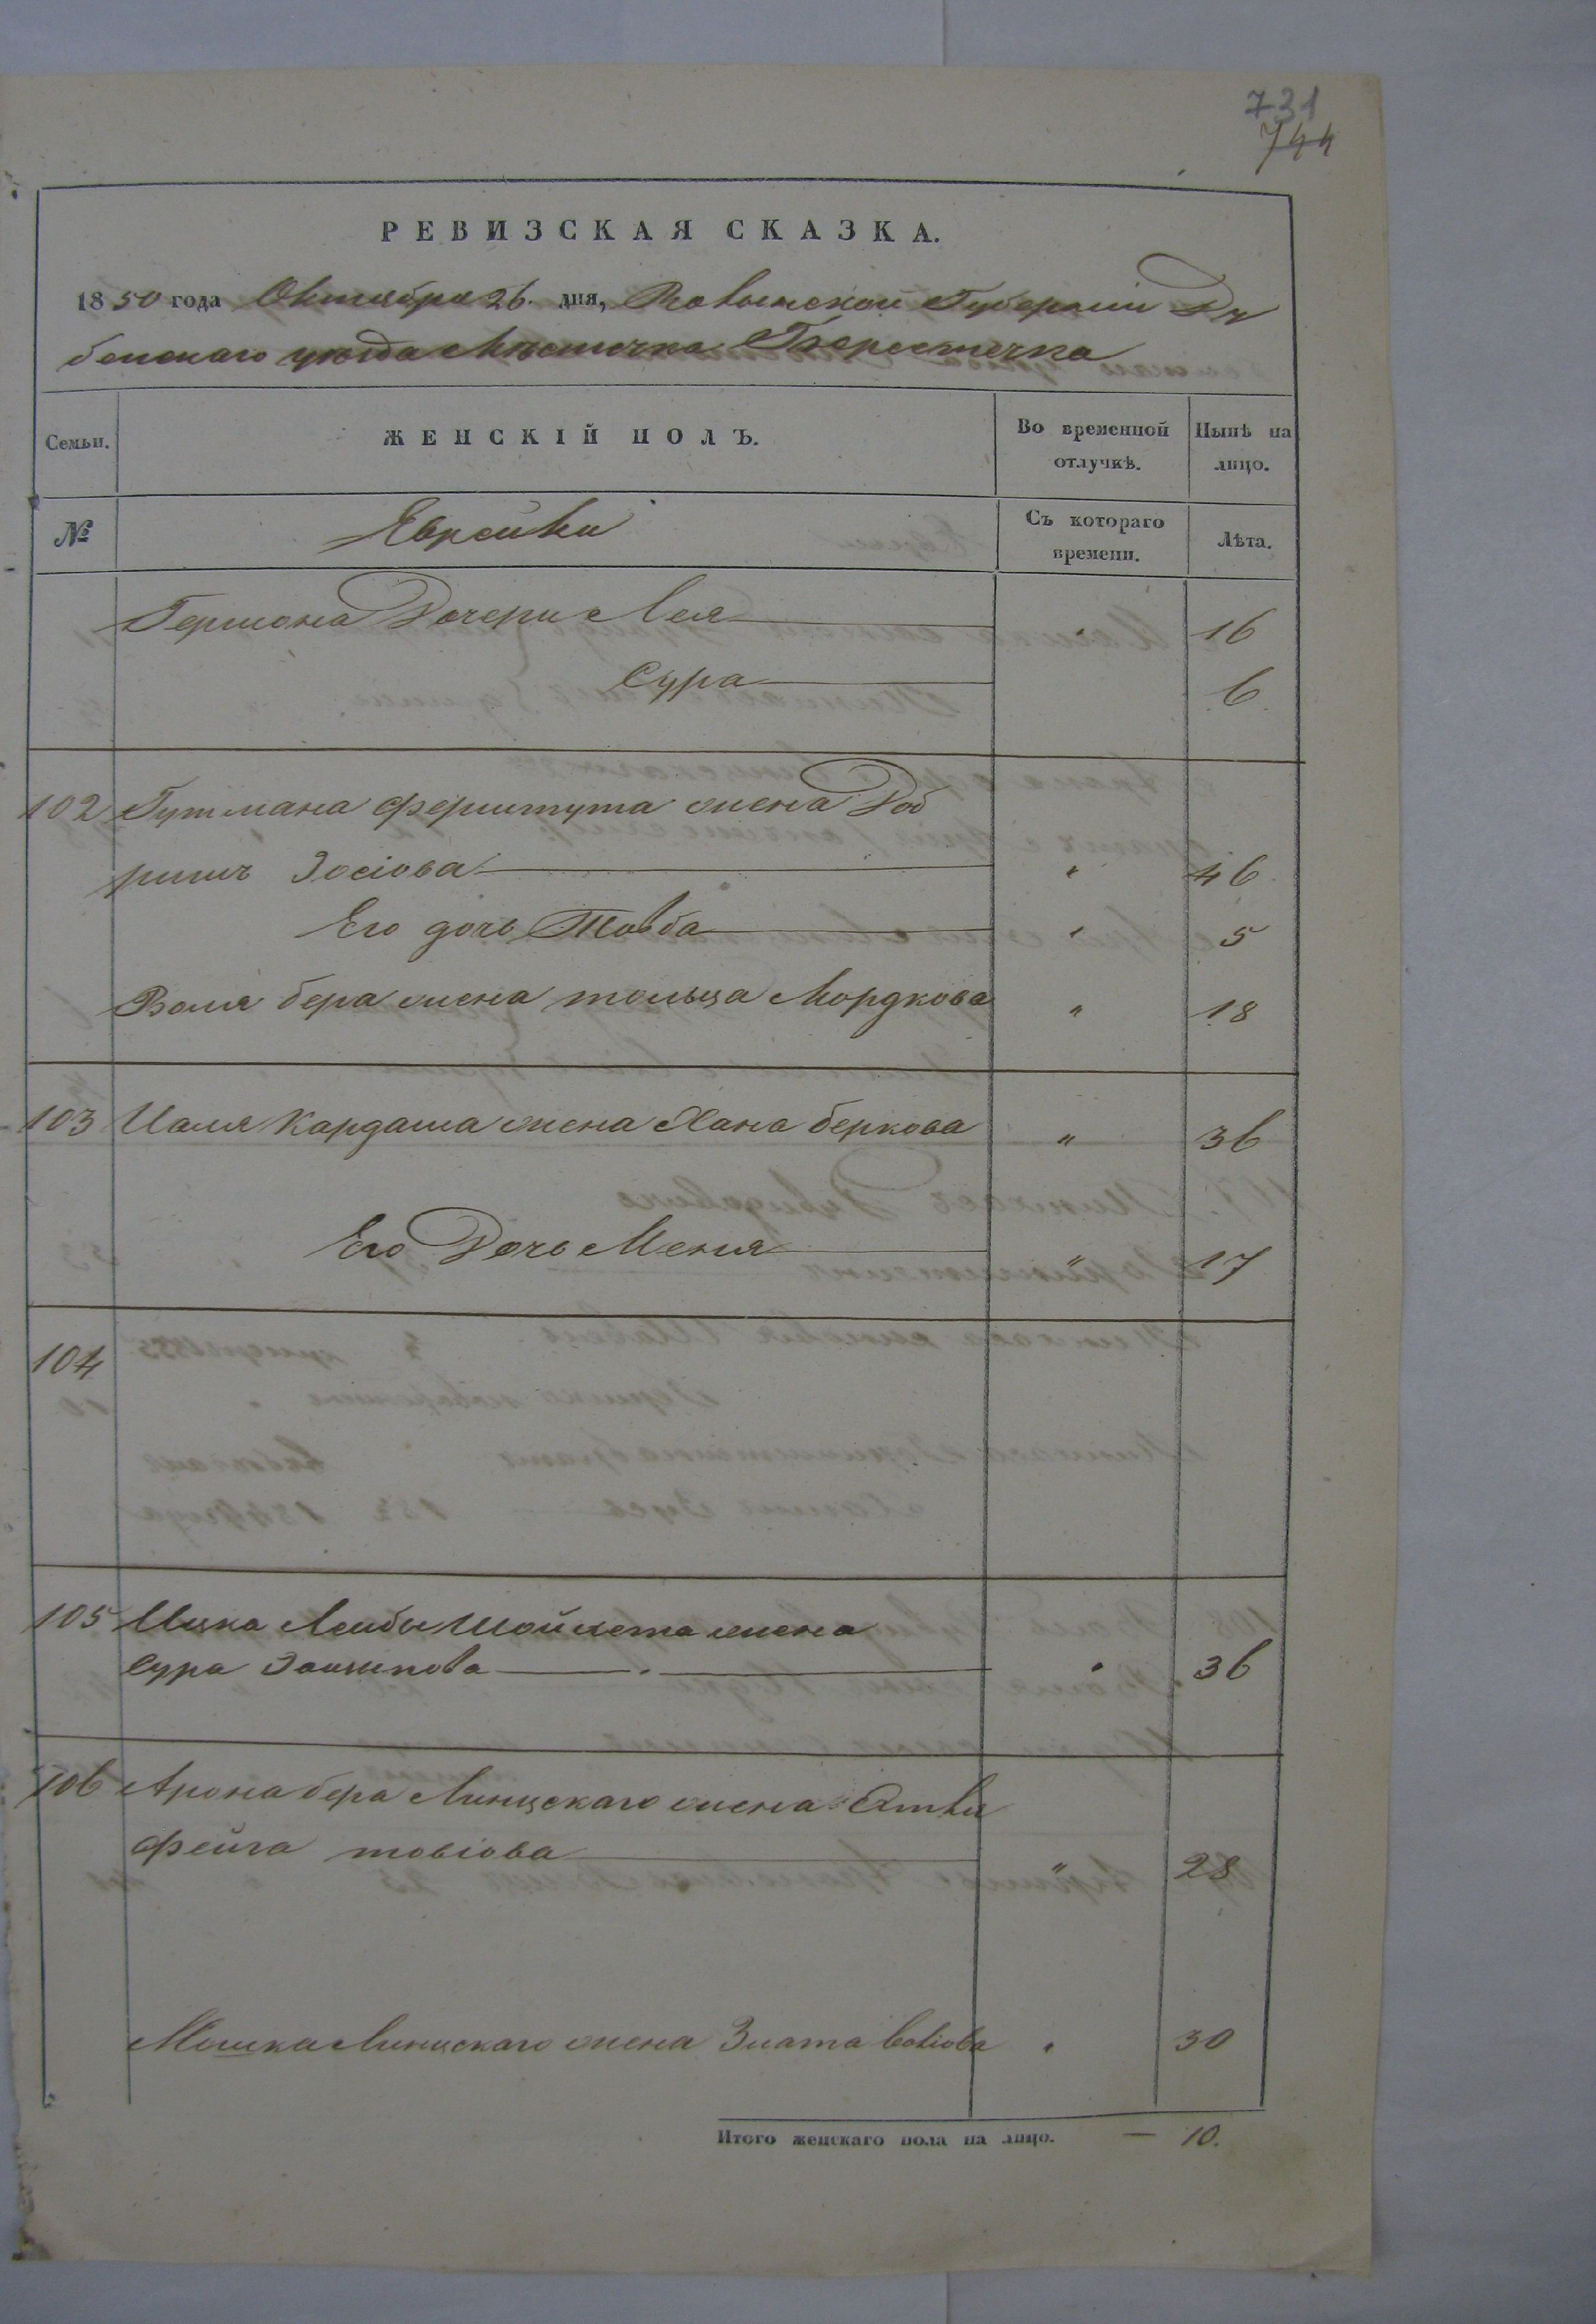 731
744
РЕВИЗСКАЯ СКАЗКА.
1850 года Октября 26. дня, Волынской Губернии Ду
бенскаго уезда Местечка Берестечка
Семьи.
ЖЕНСКІЙ ПОЛЪ.
Во временной
отлучкѣ.
Нынѣ на
лицо.
№
Еврейки
Съ котораго
времени.
Лѣта.
Гершона Дочери Лея 16
Сура 6
102 Гутмана Ферштута жена Доб
ришъ Iосіова " 46
Его дочь Товба " 5
Воля бера жена Мордкова " 18
103 Кардаша жена Хана беркова " 36
Его Дочь Меня " 17
104
105 Ицка Лейбы Шойхета жена
Сура " 36
106 Арона бера Линцскаго жена
Фейга товіова " 28
Мошка Линцскаго жена Злата вовіова " 30
Итого женскаго пола на лицо. — 10.